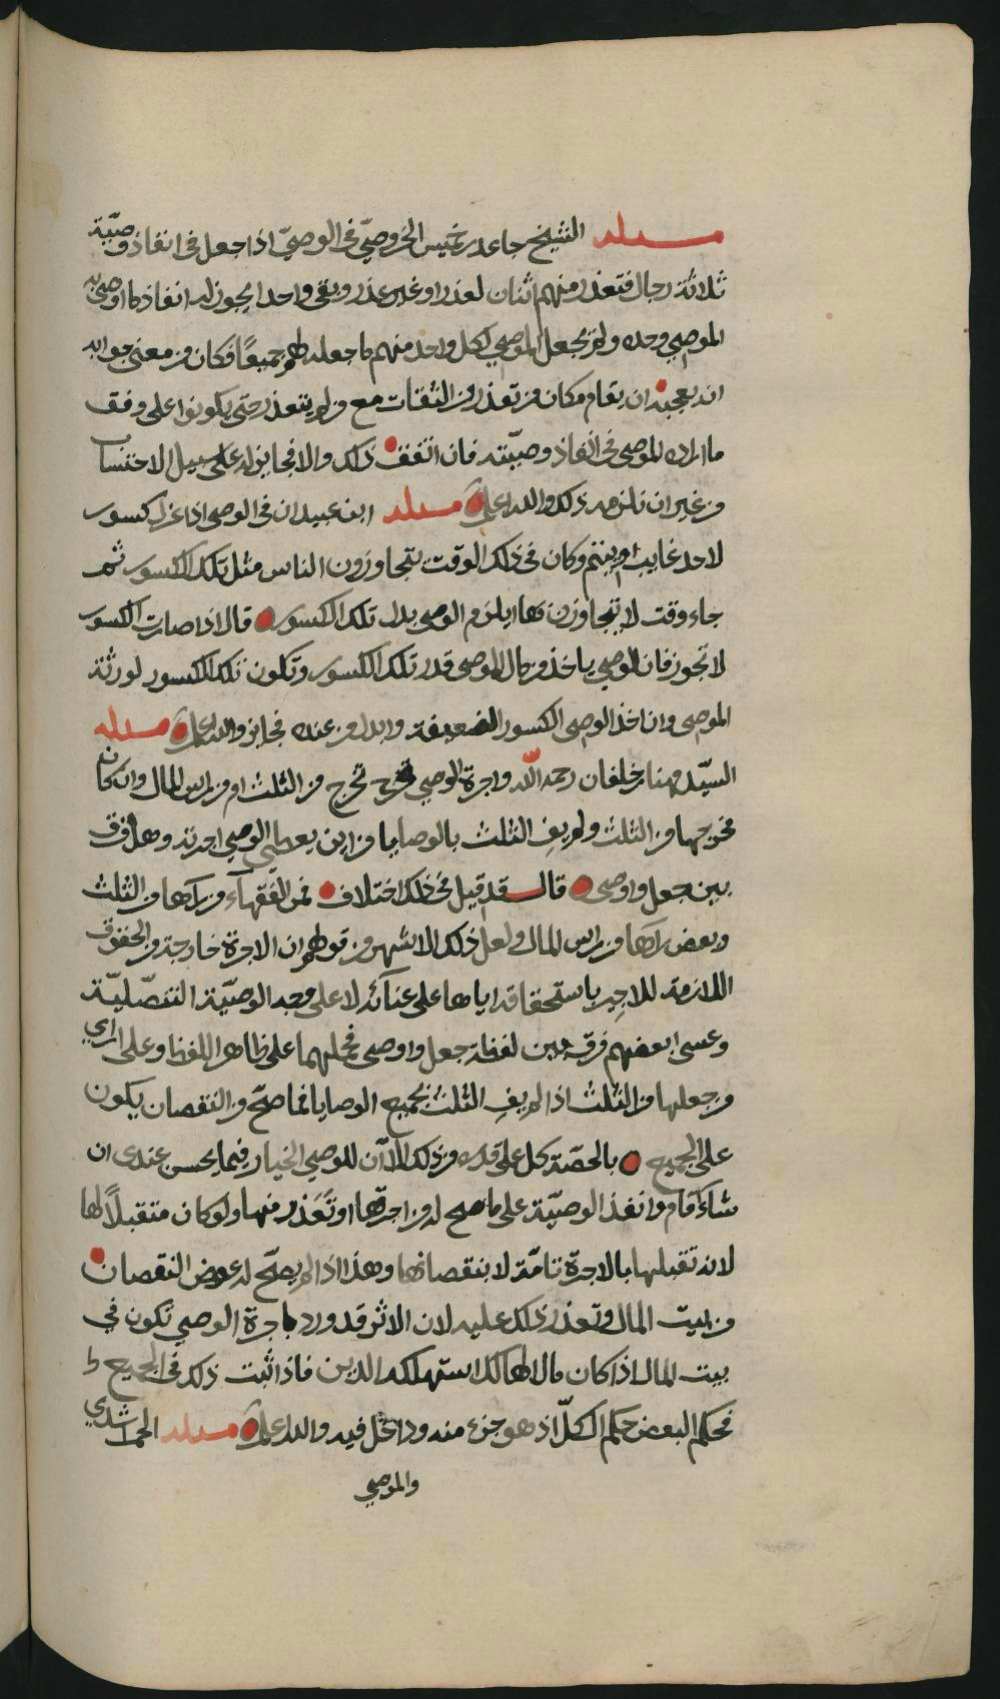 مسئلة الشيخ جاعد بن خميس الخروصيّ في الوصيّ اذا جعل في انفاذ وصيّة
ثلاثة رجال فتعذر منهم اثنان لعذر او غير عذر وبقي واحد ايجوز له انفاذ ما اوصى به
الموصي وحده ولم يجعل الموصي لكل واحد منهم ما جعله لهم جميعًا فكان من معنى جوابه
انه يعجبه ان يقام مكان من تعذر من الثقات مع من لم يتعذر حتى يكونوا على وفق
ما اراده الموصي في انفاذ وصيّته فان اتفق ذلك والا فجايز له على سبيل الاحتساب
من غير ان نلزمه ذلك والله اعلم مسئلة ابن عبيدان في الوصي اذا عزل كسور
لاحد غايب او يتيم وكان في ذلك الوقت يتجاوزون الناس مثل تلك الكسور ثم
جاء وقت لا يتجاوزن بها ايلزم الوصي بدل تلك الكسور قال اذا صارت الكسور
لا تجوز فان الوصي ياخذ من مال الموصي قدر تلك الكسور وتكون تلك الكسور لورثة
الموصي وان اخذ الوصي الكسور الضعيفة وابدل من عنده فجايز والله اعلم مسئلة
السيّد مهنا بن خلفان رحمه الله واجرة الوصي تخرج من الثلث ام من راس المال وان كان
مخرجها من الثلث ولم يفِ الثلث بالوصايا من اين يعطى الوصي اجرته وهل فرق
بين جعل واوصى قال قد قيل في ذلك اختلاف فمن الفقهآء من يراها من الثلث
وبعض يراها من راس المال ولعل ذلك الاشهر من قولهم ان الاجرة خارجة من الحقوق
اللازمة للاجير باستحقاقه اياها على عنائه لا على وجه الوصيّة التنصّليّة
وعسى بعضهم فرق بين لفظة جعل واوصى فحملهما على ظاهر اللفظ وعلى راي
من جعلها من الثلث اذا لم يفِ الثلث بجميع الوصايا فما صحّ من النقصان يكون
على الجميع بالحصّة كل على قدره ومن ذلك الا ان للوصي الخيار فيما يحسن عندي ان
شاء قام وانفذ الوصيّة على ما صح له من اجرتها او تعذر منها ولو كان متقبلاً لها
لانه تقبلها بالاجرة تامّة لا بنقصانها وهذا اذا لم يصحّ له عوض النقصان
من بيت المال وتعذر ذلك عليه لان الاثر قد ورد باجرة الوصي تكون في
بيت المال اذا كان مال الهالك استهلكه الدين فاذا ثبت ذلك في الجميع
فحكم البعض حكم الكلّ اذ هو جزء منه وداخل فيه والله اعلم مسئلة الحراشدي
والموصي